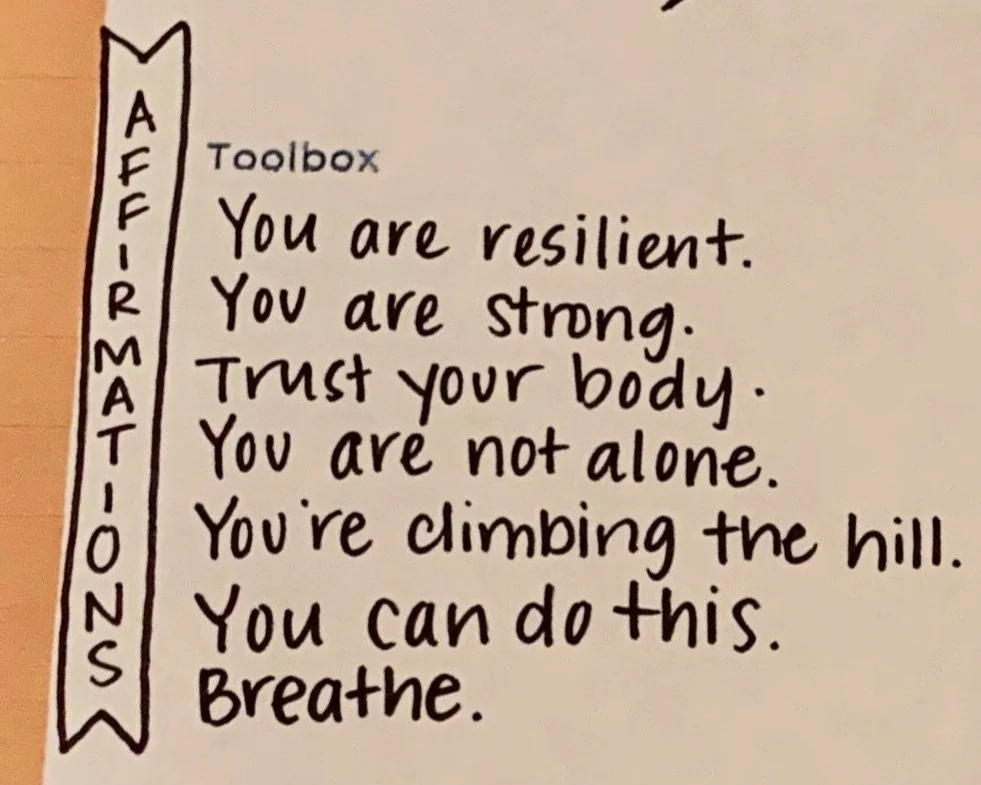 AFFIRMATIONS
Toolbox
You are resilient.
You are strong.
Trust your body.
You are not alone.
You're climbing the hill.
You can do this.
Breathe.